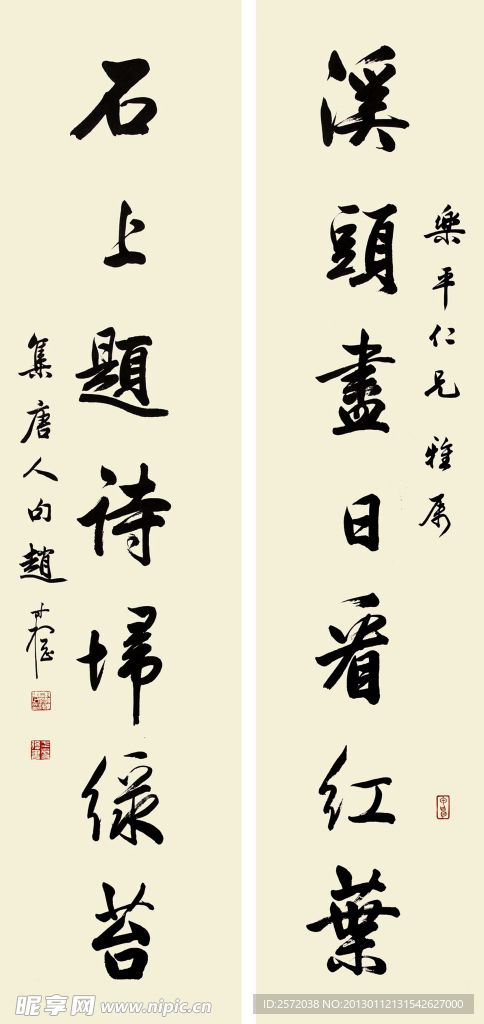 樂平仁兄雅属
溪頭盡日看紅葉
石上題詩埽綠苔
集唐人句趙
昵享网 www.nipic.cn
ID:2572038 NO:20130112131542627000